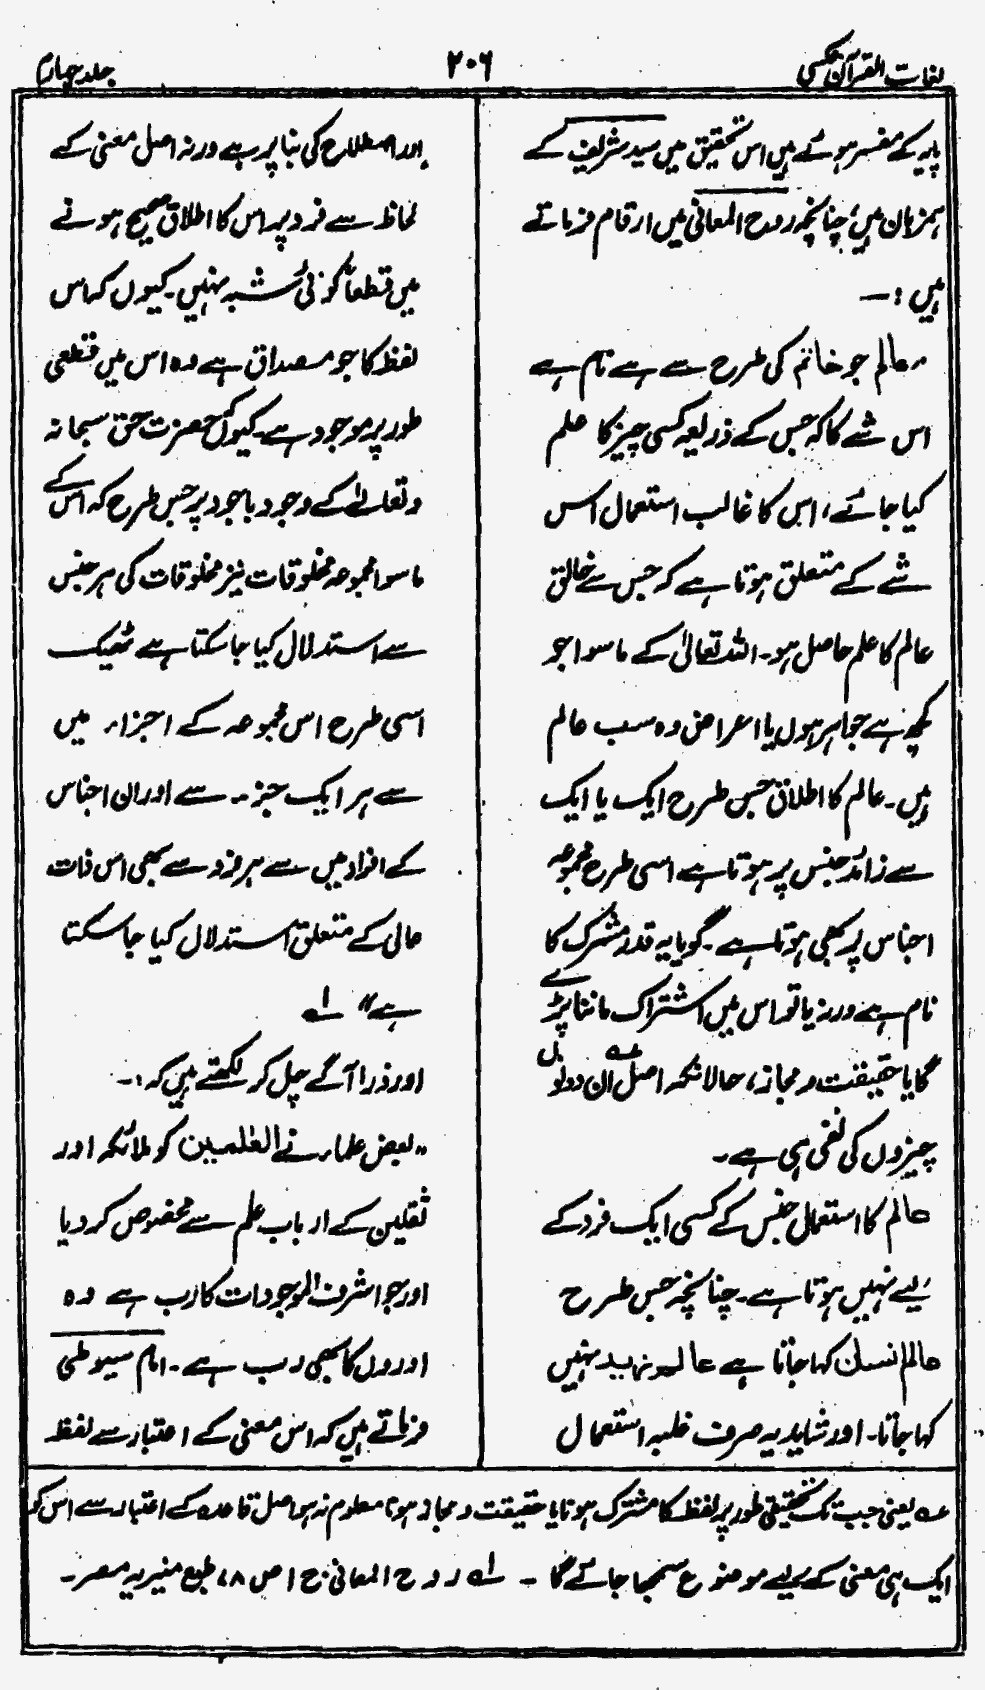 لغات القرآن عکسی
۲۰۶
جلد چہارم
پایہ کے مفسر ہوئے ہیں اس تحقیق میں سید شریف کے
ہمزبان ہیں، چنانچہ روح المعانی میں ارقام فرماتے
ہیں :۔
”عالم جو خاتم کی طرح سے ہے نام ہے
اس شے کا کہ جس کے ذریعہ کسی چیز کا علم
کیا جائے، اس کا غالب استعمال اس
شے کے متعلق ہوتا ہے کہ جس سے خالق
عالم کا علم حاصل ہو۔ اللہ تعالیٰ کے ماسوا جو
کچھ ہے جواہر ہوں یا اعراض وہ سب عالم
ہیں۔ عالم کا اطلاق جس طرح ایک یا ایک
سے زائد جنس پر ہوتا ہے اسی طرح مجموعہ
اجناس پر بھی ہوتا ہے۔ گویا یہ قدر مشترک کا
نام ہے ورنہ یا تو اس میں اشتراک ماننا پڑے
گا یا حقیقت و مجاز، حالانکہ اصل عہ ان دونوں
چیزوں کی نفی ہی ہے۔
عالم کا استعمال جنس کے کسی ایک فرد کے
لیے نہیں ہوتا ہے۔ چنانچہ جس طرح
عالم انسان کہا جاتا ہے عالم زید نہیں
کہا جاتا۔ اور شاید یہ صرف غلبہ استعمال
اور اصطلاح کی بنا پر ہے ورنہ اصل معنی کے
لحاظ سے فرد پر اس کا اطلاق صحیح ہونے
میں قطعاً کوئی شبہ نہیں۔ کیوں کہ اس
لفظ کا جو مصداق ہے وہ اس میں قطعی
طور پر موجود ہے۔ کیوں کہ حضرت حق سبحانہ
وتعالےٰ کے وجود باجود پر جس طرح کہ اس کے
ماسوا مجموعہ مخلوقات نیز مخلوقات کی ہر جنس
سے استدلال کیا جا سکتا ہے ٹھیک
اسی طرح اس مجموعہ کے اجزاء میں
سے ہر ایک جز۔ سے اور ان اجناس
کے افراد میں سے ہر فرد سے بھی اس ذات
عالی کے متعلق استدلال کیا جا سکتا
ہے“ لہ
اور ذرا آگے چل کر لکھتے ہیں کہ :۔
”بعض علماء نے العٰلمین کو ملائکہ اور
ثقلین کے ارباب علم سے مخصوص کر دیا
اور جو اشرف الموجودات کا رب ہے وہ
اوروں کا بھی رب ہے۔ امام سیوطی
فرماتے ہیں کہ اس معنی کے اعتبار سے لفظ
عہ یعنی جب تک تحقیقی طور پر لفظ کا مشترک ہونا یا حقیقت و مجاز ہونا معلوم نہ ہو اصل قاعدہ کے اعتبار سے اس کو
ایک ہی معنی کے لیے موضوع سمجھا جائے گا ۔ لہ روح المعانی ج ا ص ۷۸، طبع منیریہ مصر۔